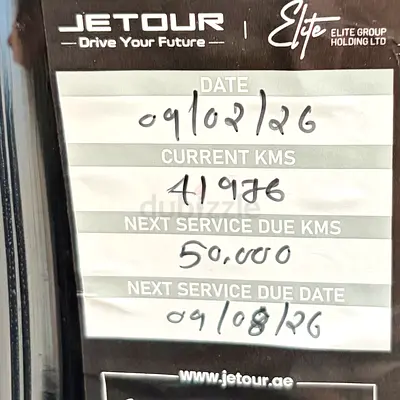 JETOUR
Drive Your Future
Elite ELITE GROUP
HOLDING LTD
DATE
09/02/26
CURRENT KMS
41976
dubizzle
NEXT SERVICE DUE KMS
50,000
NEXT SERVICE DUE DATE
09/08/26
www.jetour.ae